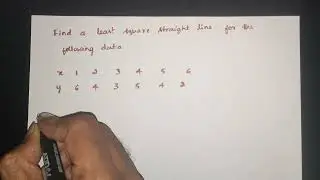 Find a least square straight line for the
following data
x 1 2 3 4 5 6
y 6 4 3 5 4 2